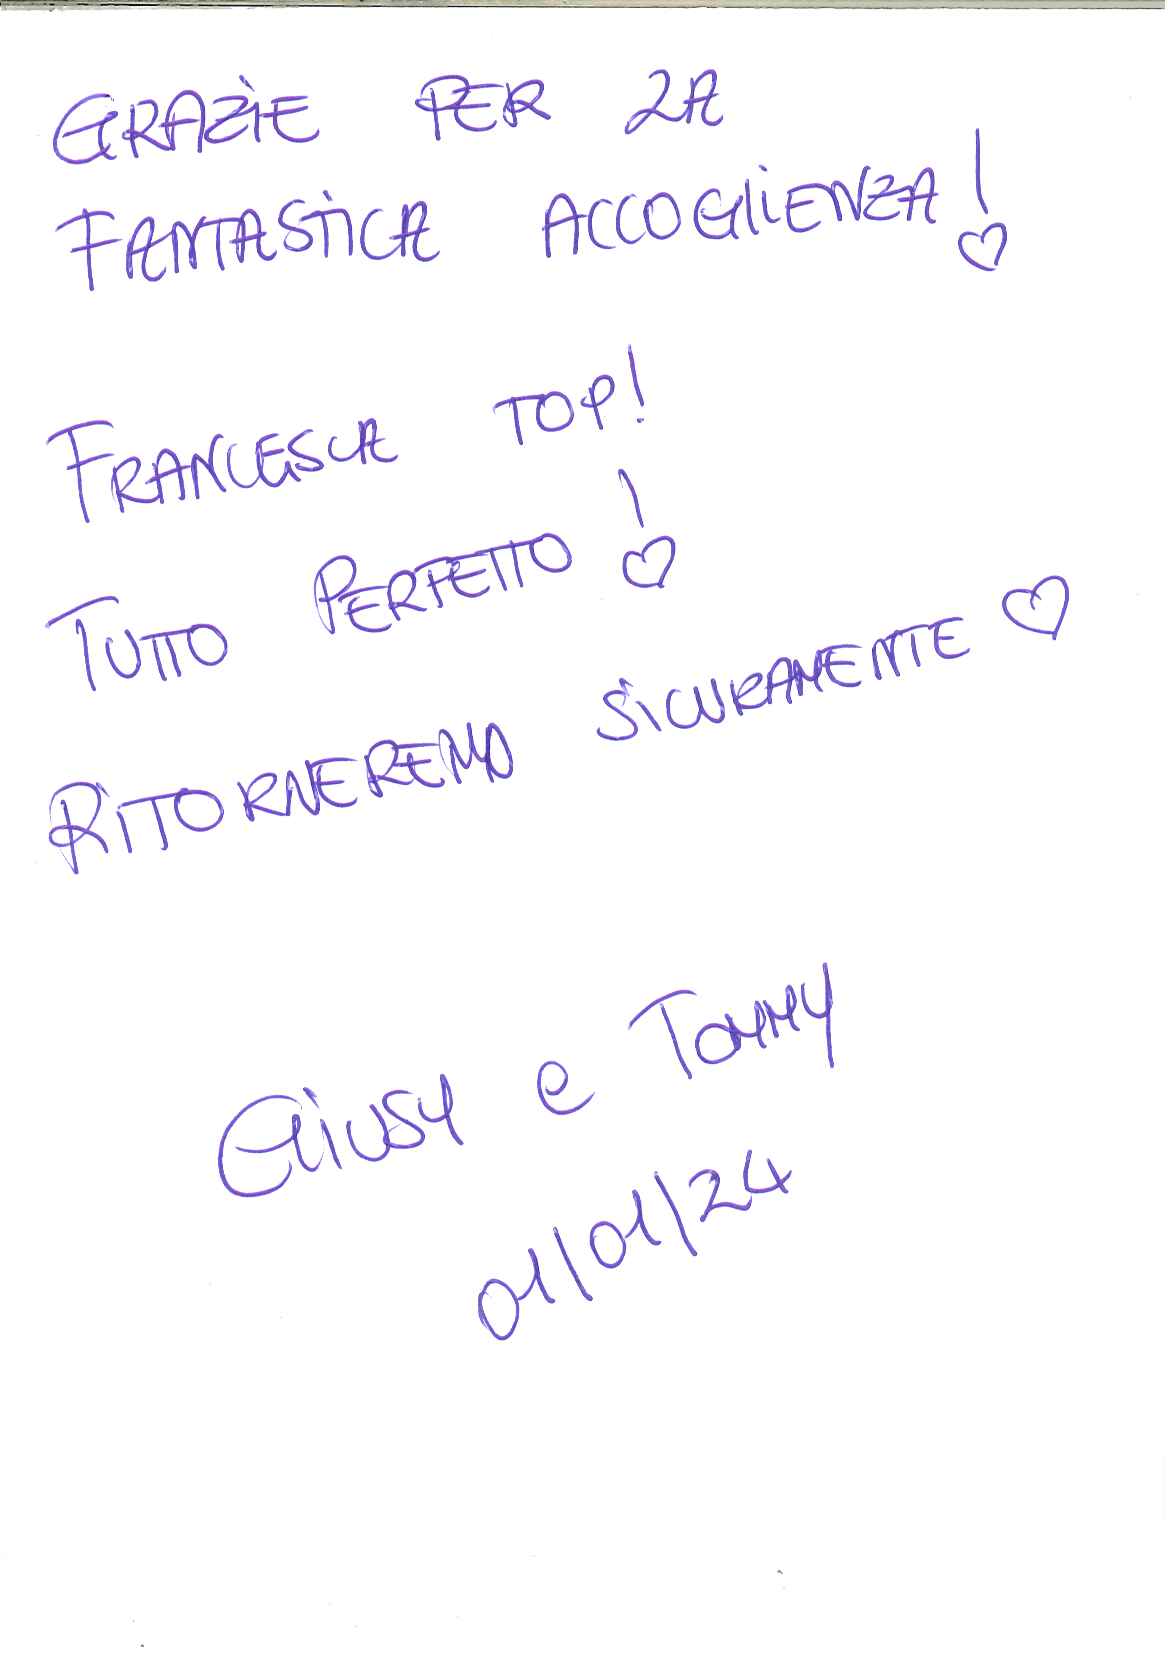 GRAZIE PER LA
FANTASTICA ACCOGLIENZA!
FRANCESCA TOP!
TUTTO PERFETTO!
RITORNEREMO SICURAMENTE ♡
Giusy e Tommy
01/01/24